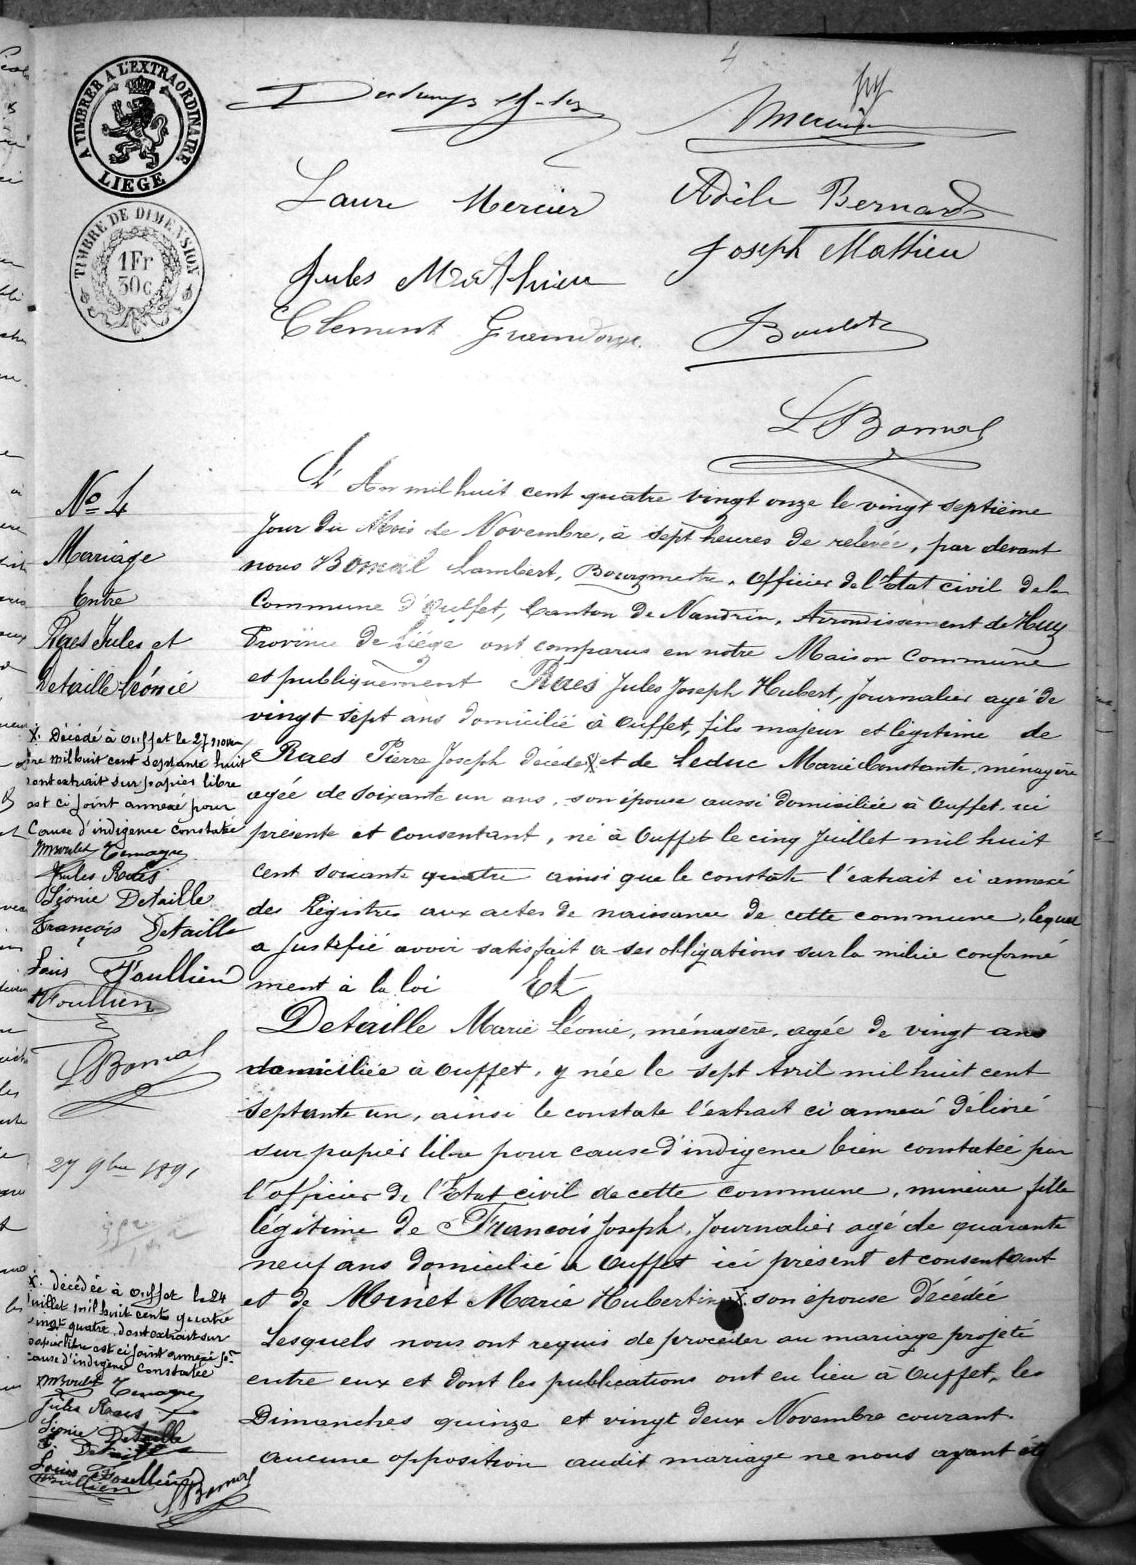 4
A TIMBRER A L'EXTRAORDINAIRE
LIEGE
TIMBRE DE DIMENSION
1Fr
30c
Laure Mercier
Adèle Bernard
Joseph Mathieu
Jules Mathieu
Clement
Boulet
LBomal
No 4
Mariage
Entre
Raes Jules et
Detaille Léonie
L'An mil huit cent quatre vingt onze le vingt septième
jour du Mois de Novembre, à sept heures de relevée, par devant
nous Bomal Lambert, Bourgmestre, Officier de l'Etat civil de la
Commune d'Ouffet, Canton de Nandrin, Arrondissement de Huy
Province de Liège ont comparus en notre Maison Commune
et publiquement Raes Jules Joseph Hubert, Journalier agé de
vingt sept ans domicilié à Ouffet, fils majeur et légitime de
Raes Pierre Joseph décédé X et de Leduc Marie Constante, ménagère
agée de soixante un ans, son épouse aussi domiciliée à Ouffet, ici
présente et consentant, né à Ouffet le cinq Juillet mil huit
cent soixante quatre ainsi que le constate l'extrait ci annexé
des Régistres aux actes de naissance de cette commune, lequel
a justifié avoir satisfait a ses obligations sur la milice conformé
ment à la loi Et
Detaille Marie Léonie, ménagère, agée de vingt ans
domiciliée à Ouffet, y née le sept Avril mil huit cent
septante un, ainsi le constate l'extrait ci annexé délivré
sur papier libre pour cause d'indigence bien constatée par
l'officier de l'Etat civil de cette commune, mineure fille
légitime de François Joseph, Journalier agé de quarante
neuf ans domicilié à Ouffet ici présent et consentant
et de Minet Marie Hubertine X son épouse décédée
Lesquels nous ont requis de procéder au mariage projeté
entre eux et dont les publications ont eu lieu à Ouffet, les
Dimanches quinze et vingt deux Novembre courant.
aucune opposition audit mariage ne nous ayant été
X. Décédé à Ouffet le 27 novem
bre mil huit cent septante huit
dont extrait sur papier libre
est ci joint annexé pour
Cause d'indigence constatée
Jules Raes
Léonie Detaille
François Detaille
Louis Foullien
Foullien
LBomal
27 9bre 1891
X. décédée à Ouffet le 24
Juillet mil huit cent quatre
vingt quatre, dont extrait sur
papier libre est ci joint annexé pr
cause d'indigence constatée
Jules Raes
Léonie Detaille
F. Detaille
Louis Foullien
Foullien
LBomal